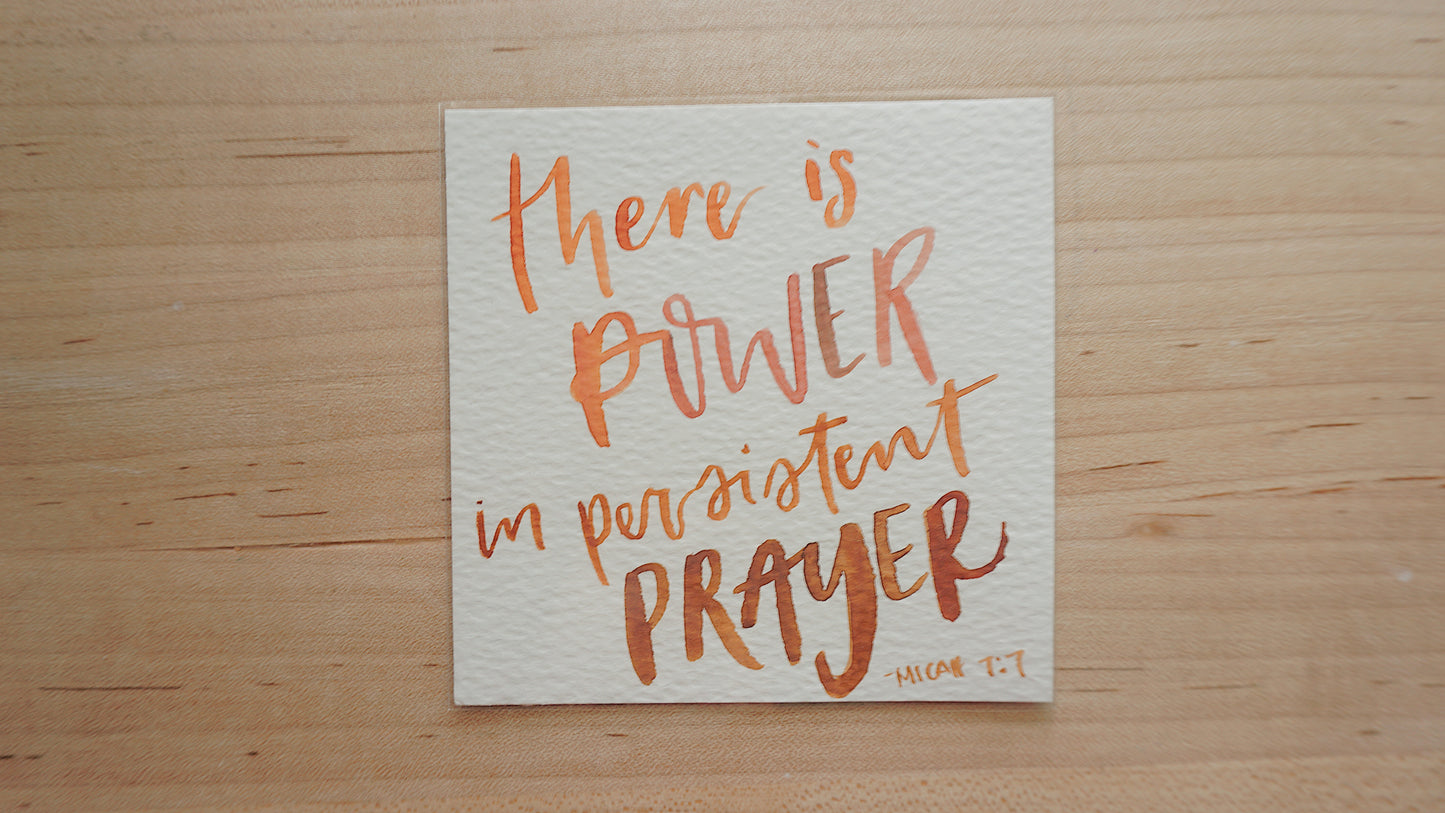 there is
POWER
in persistent
PRAYER
-MICAH 7:7